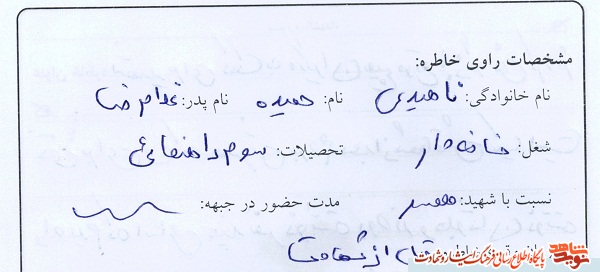 مشخصات راوی خاطره:
نام خانوادگی: ناهیدی نام: حمیده نام پدر: غلامرضا
شغل: خانه دار تحصیلات: سوم راهنمایی
نسبت با شهید: همسر مدت حضور در جبهه:
قبل از شهادت
نوید شاهد پایگاه اطلاع رسانی فرهنگ ایثار و شهادت